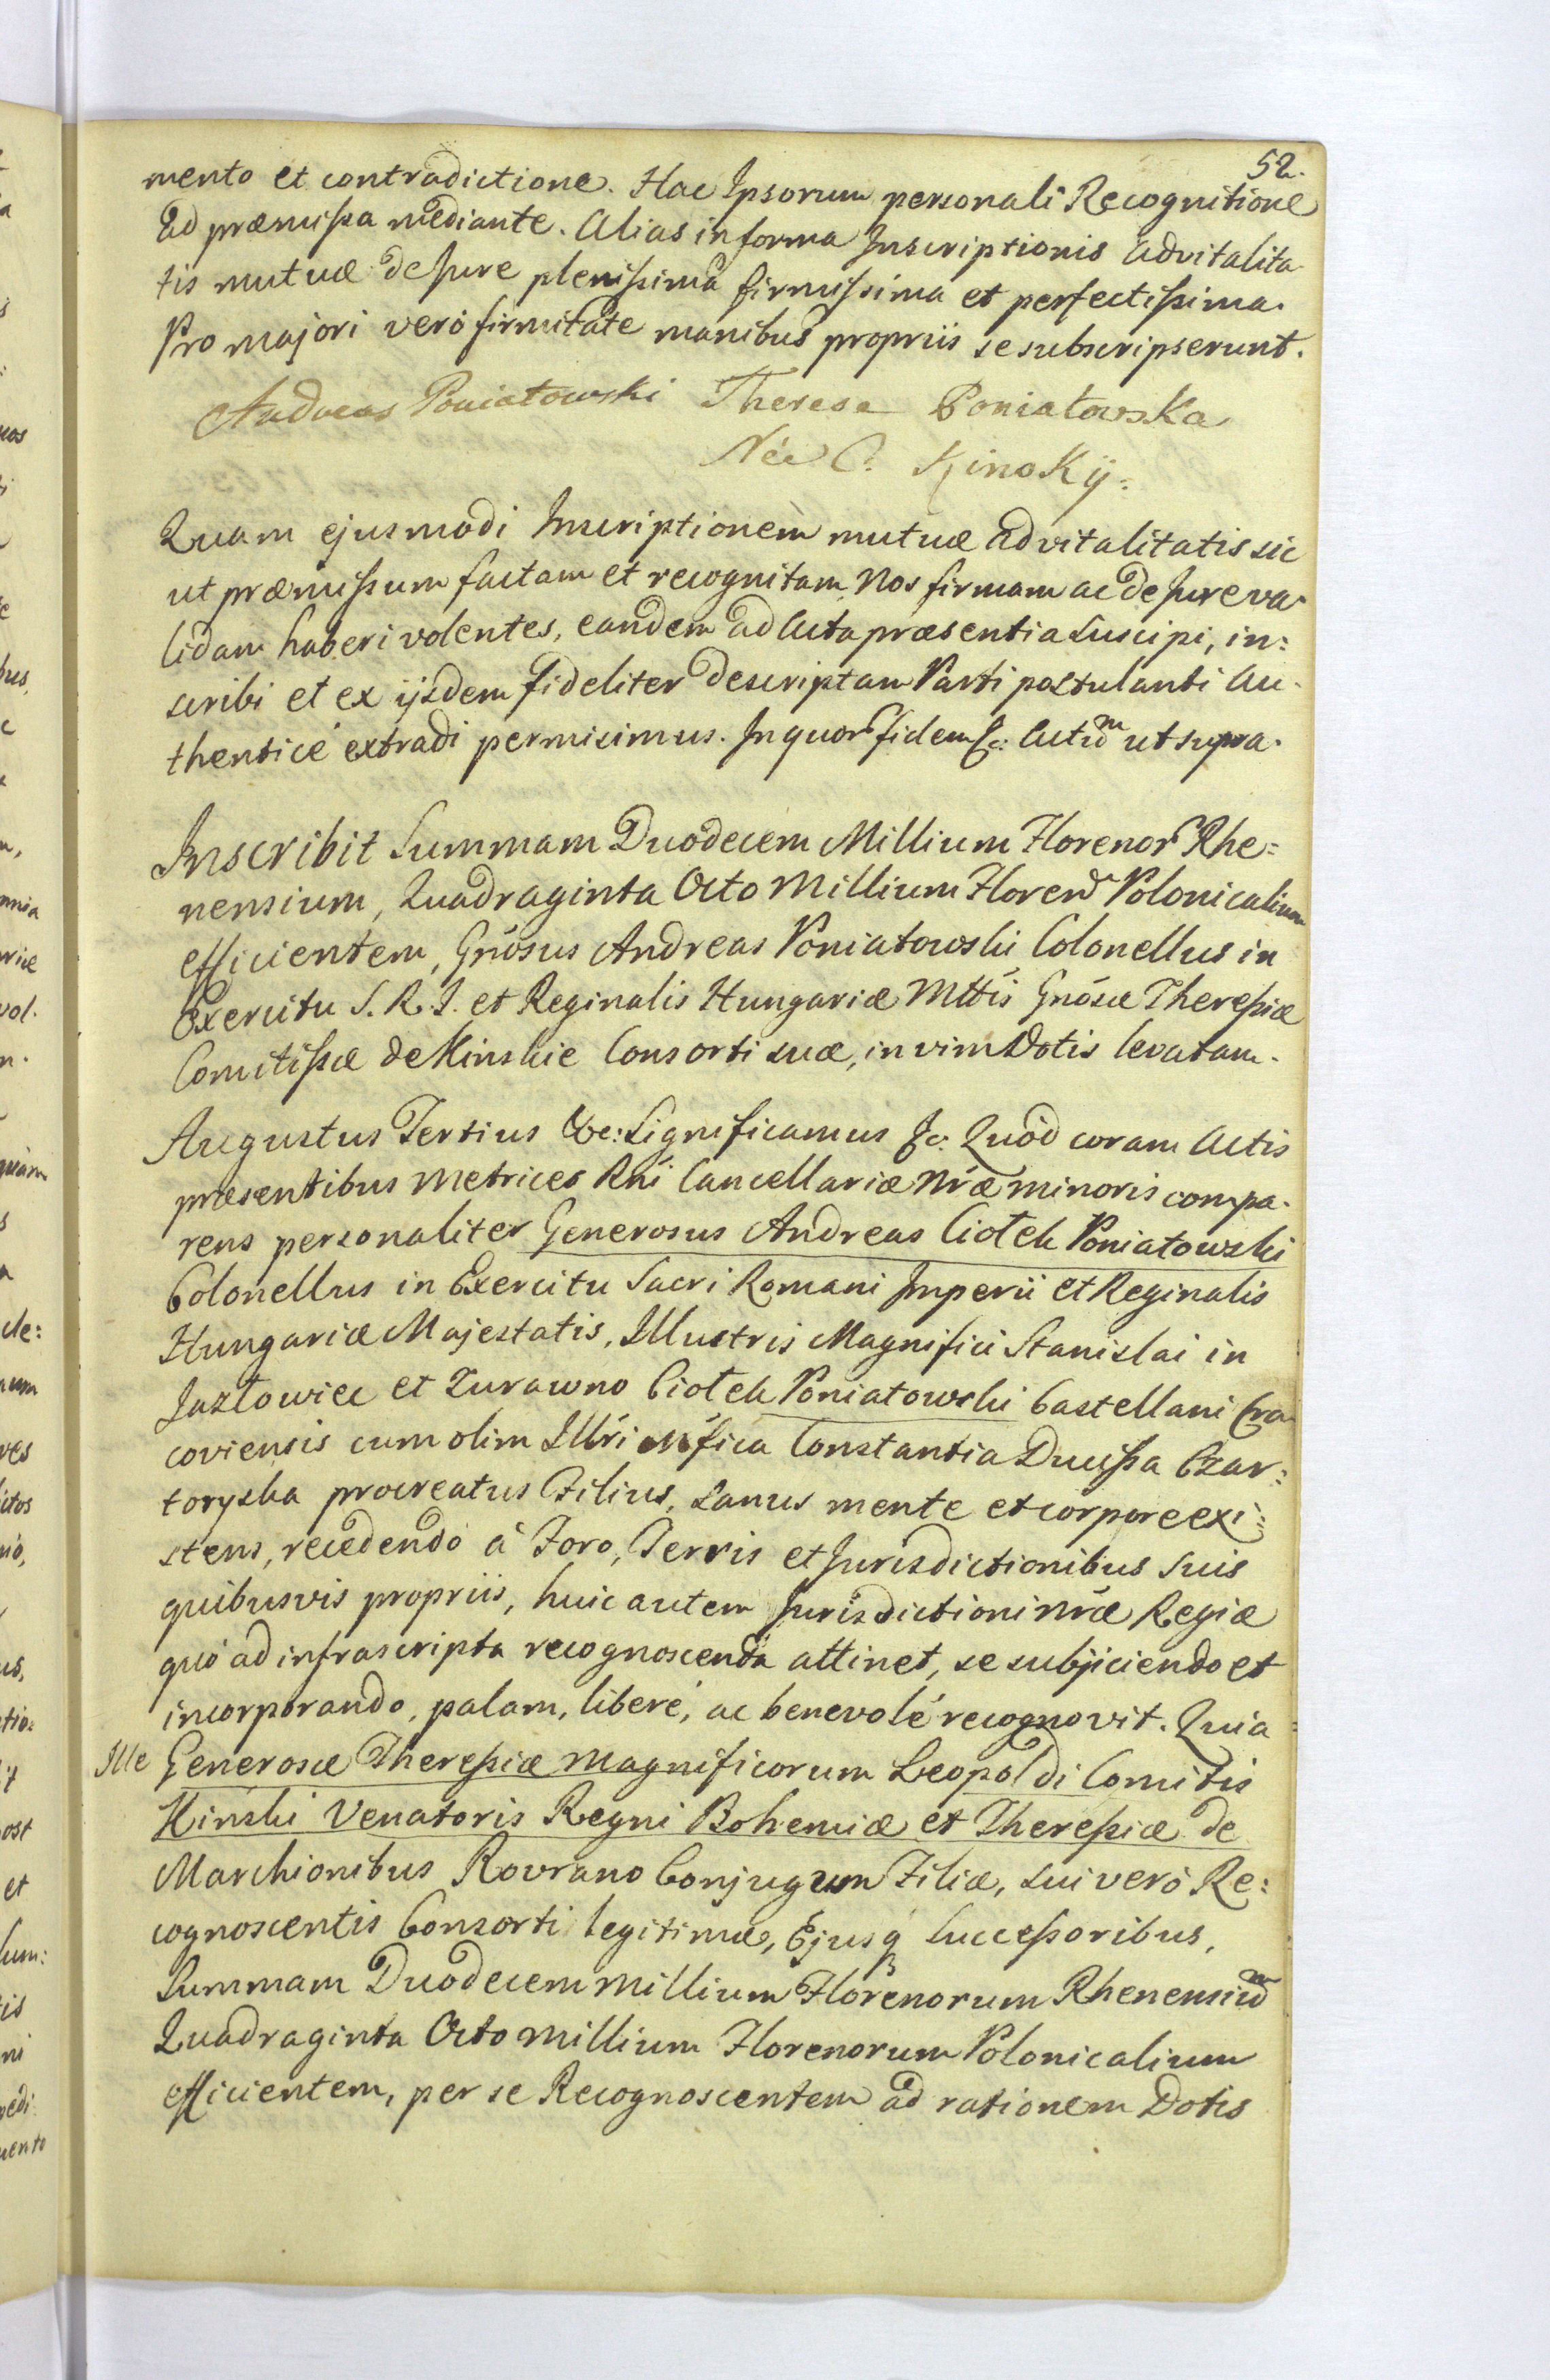 52.
mento et contradictione. Hac Ipsorum personali Recognitione
ad præmissa mediante. Alias in forma Inscriptionis advitalita-
tis mutuæ de Jure plenissima firmissima et perfectissima.
Pro majori verò firmitate manibus propriis se subscripserunt.
Andreas Poniatowski Therese Poniatowska
Née C. Kinskÿ.
Quam ejusmodi Inscriptionem mutuæ advitalitatis sic
ut præmissum factam et recognitam, Nos firmam ac de Jure va-
lidam haberi volentes, eandem ad Acta præsentia suscipi, in:
scribi et ex ijsdem fideliter descriptam Parti postulanti Au-
thenticè extradi permisimus. In quor fidem &c: Actũm ut supra.
Inscribit Summam Duodecem Millium Florenor Rhe:
nensium, Quadraginta Octo Millium Floren Polonicalium
efficientem, Gnosus Andreas Poniatowski Colonellus in
Exercitu S. R. I. et Reginalis Hungariæ Mttis Gnosæ Theressiæ
Comitissæ de Kinskie Consorti suæ, in vim Dotis levatam.
Augustus Tertius &c: Significamus &c. Quòd coram Actis
præsentibus Metrices Rni Cancellariæ Nræ minoris compa-
rens personaliter Generosus Andreas Ciołek Poniatowski
Colonellus in Exercitu Sacri Romani Imperii et Reginalis
Hungariæ Majestatis, Illustris Magnifici Stanislai in
Jazłowiec et Zurawno Ciołek Poniatowski Castellani Cra-
coviensis cum olim Illri Mfica Constantia Ducissa Czar:
toryska procreatus Filius, sanus mente et corpore exi:
stens, recedendo à Foro, Terris et Jurisdictionibus suis
quibusvis propriis, huic autem Jurisdictioni Nræ Regiæ
quò ad infrascripta recognoscenda attinet, se subjiciendo et
incorporando, palam, liberè, ac benevolè recognovit. Quia
Ille Generosæ Theressiæ Magnificorum Leopoldi Comitis
Kinski Venatoris Regni Bohemiæ et Theressiæ de
Marchionibus Rovrano Conjugum Filiæ, sui verò Re:
cognoscentis Consorti legitimæ, Ejusq Successoribus,
Summam Duodecem Millium Florenorum Rhenensiũm
Quadraginta Octo Millium Florenorum Polonicalium
efficientem, per se Recognoscentem ad rationem Dotis